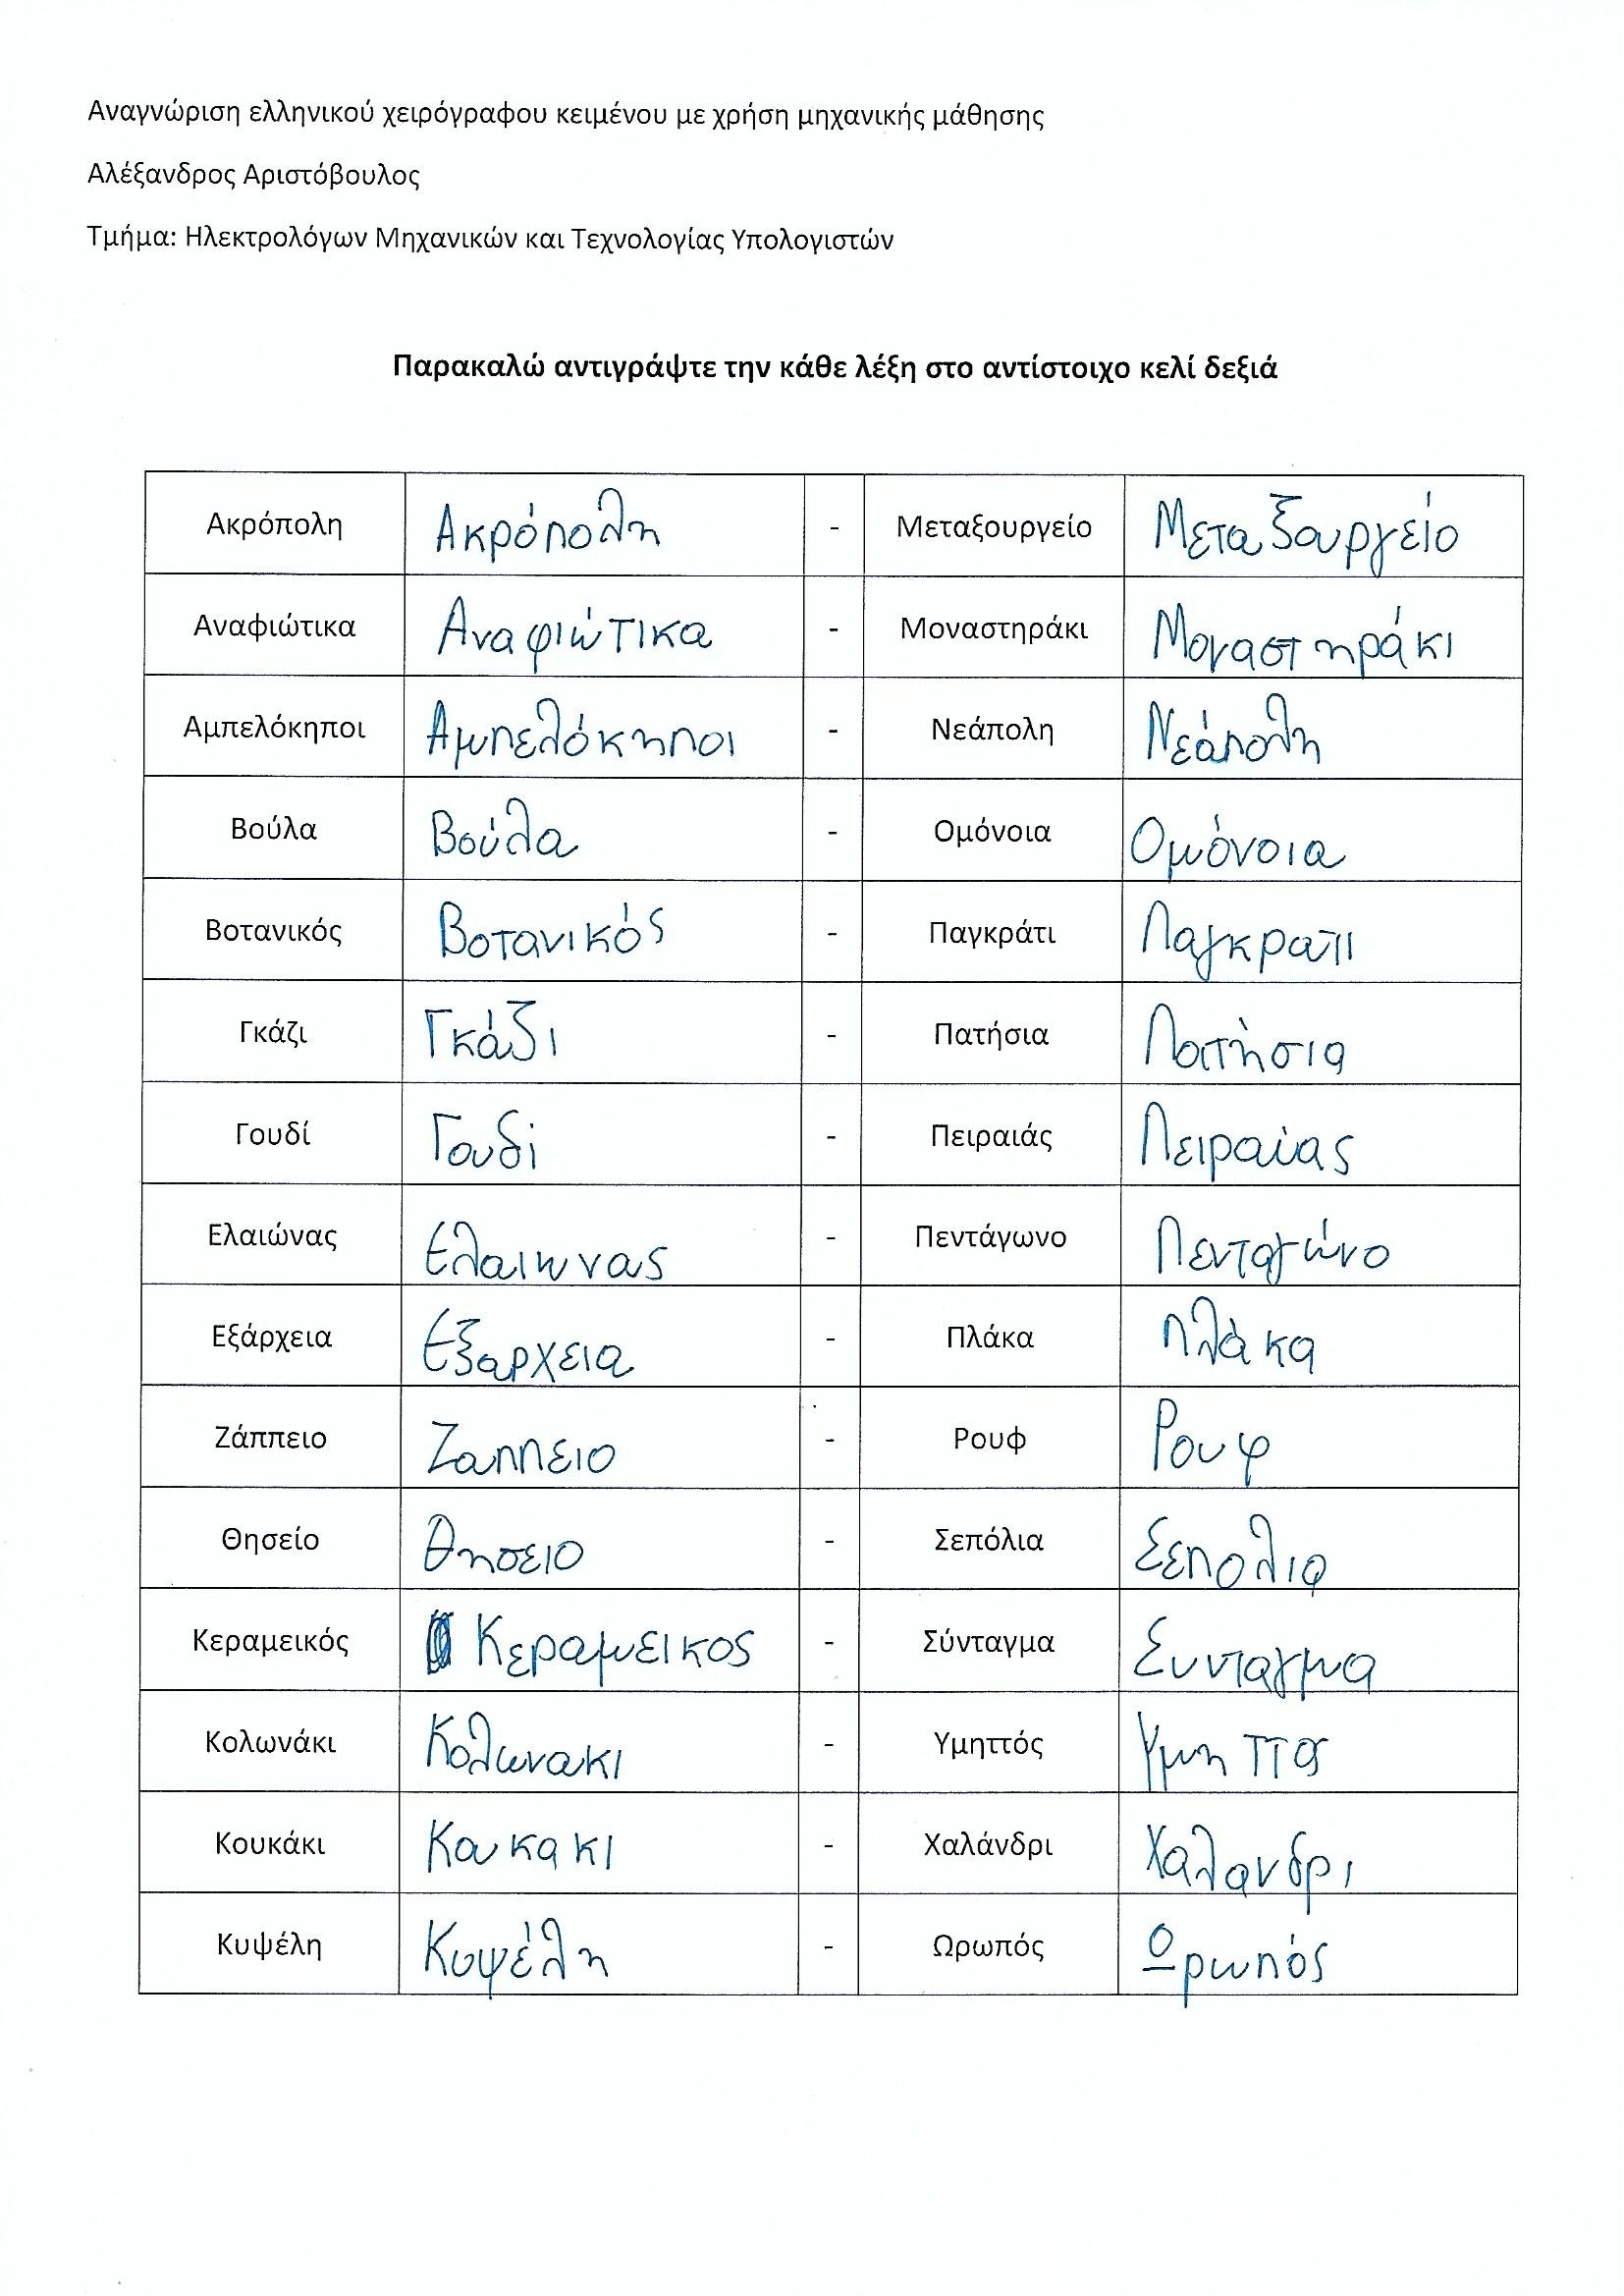 Αναγνώριση ελληνικού χειρόγραφου κειμένου με χρήση μηχανικής μάθησης
Αλέξανδρος Αριστόβουλος
Τμήμα: Ηλεκτρολόγων Μηχανικών και Τεχνολογίας Υπολογιστών
Παρακαλώ αντιγράψτε την κάθε λέξη στο αντίστοιχο κελί δεξιά
Ακρόπολη Ακρόπολη - Μεταξουργείο Μεταξουργείο
Αναφιώτικα Αναφιώτικα - Μοναστηράκι Μοναστηράκι
Αμπελόκηποι Αμπελόκηποι - Νεάπολη Νεάπολη
Βούλα Βούλα - Ομόνοια Ομόνοια
Βοτανικός Βοτανικός - Παγκράτι Παγκρατι
Γκάζι Γκάζι - Πατήσια Πατήσια
Γουδί Γουδί - Πειραιάς Πειραίας
Ελαιώνας Ελαιωνας - Πεντάγωνο Πενταγώνο
Εξάρχεια Εξαρχεια - Πλάκα Πλάκα
Ζάππειο Ζαππειο - Ρουφ Ρουφ
Θησείο Θησειο - Σεπόλια Σεπολια
Κεραμεικός Κεραμεικος - Σύνταγμα Συνταγμα
Κολωνάκι Κολωνακι - Υμηττός Υμηττος
Κουκάκι Κουκακι - Χαλάνδρι Χαλανδρι
Κυψέλη Κυψέλη - Ωρωπός Ωρωπός